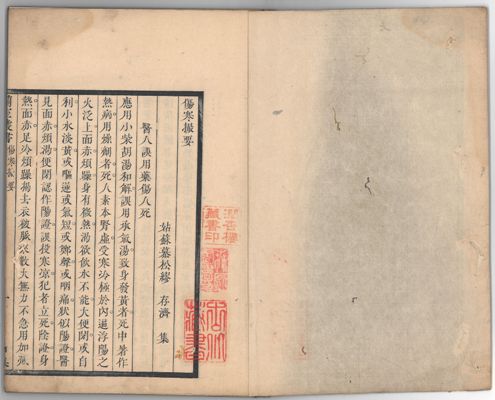 傷寒撮要
姑蘇慕松繆 存濟 集
醫人誤用藥傷人死
應用小柴胡湯和解誤用承氣湯致身發黃者死中暑作
熱病用燥劑者死人素本野虛受寒冷極於內逼浮陽之
火泛上面赤煩躁身有微熱渴欲飲水不能大便閉或自
利小水淡黃或嘔逆或氣短或鄭聲或咽痛狀似陽證醫
見面赤煩渴便閉認作陽證誤投寒凉犯者立死陰證身
熱面赤足冷煩躁揭去衣被脈 數大無力不急用加減
傷寒撮要
藏書印
藏書